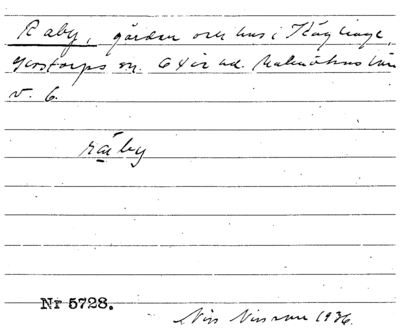 Raby, gårdar och hus i Käglinge,
Glostorps sn. Oxie hd. Malmöhus län
v. 6.
råby
Nr 5728.
Nils Nilsson 1936.